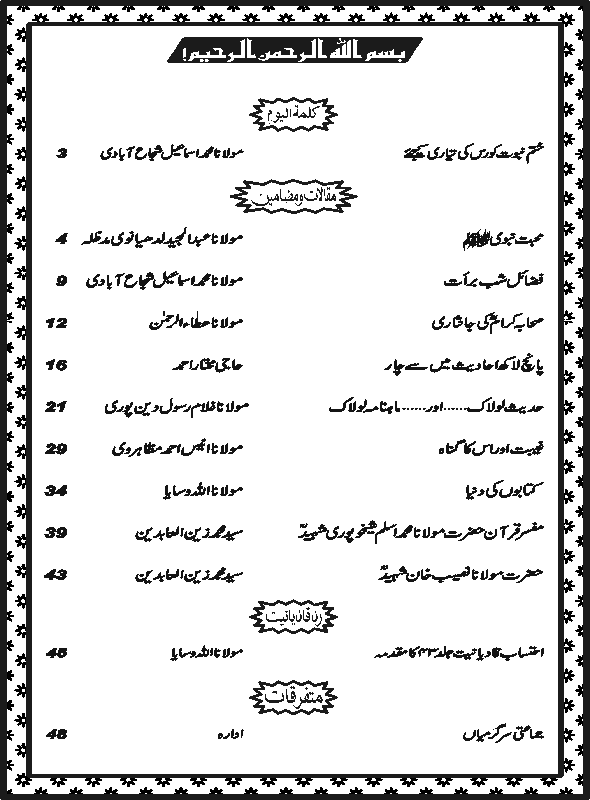 بسم الله الرحمن الرحیم!
کلمۃ الیوم
ختم نبوت کورس کی تیاری کیجئے مولانا محمد اسماعیل شجاع آبادی 3
مقالات و مضامین
محبت نبوی ﷺ مولانا عبدالمجید لدھیانوی مدظلہ 4
فضائل شب برأت مولانا محمد اسماعیل شجاع آبادی 9
صحابہ کرامؓ کی جانثاری مولانا عطاء الرحمٰن 12
پانچ لاکھ احادیث میں سے چار حاجی مختار احمد 16
حدیث لولاک......اور......ماہنامہ لولاک مولانا غلام رسول دین پوری 21
غیبت اور اس کا گناہ مولانا انیس احمد مظاہروی 29
کتابوں کی دنیا مولانا اللہ وسایا 34
مفسر قرآن حضرت مولانا محمد اسلم شیخوپوری شہیدؒ سید محمد زین العابدین 39
حضرت مولانا نصیب خان شہیدؒ سید محمد زین العابدین 43
رد قادیانیت
احتساب قادیانیت جلد ۴۳ کا مقدمہ مولانا اللہ وسایا 45
متفرقات
جماعتی سرگرمیاں ادارہ 48